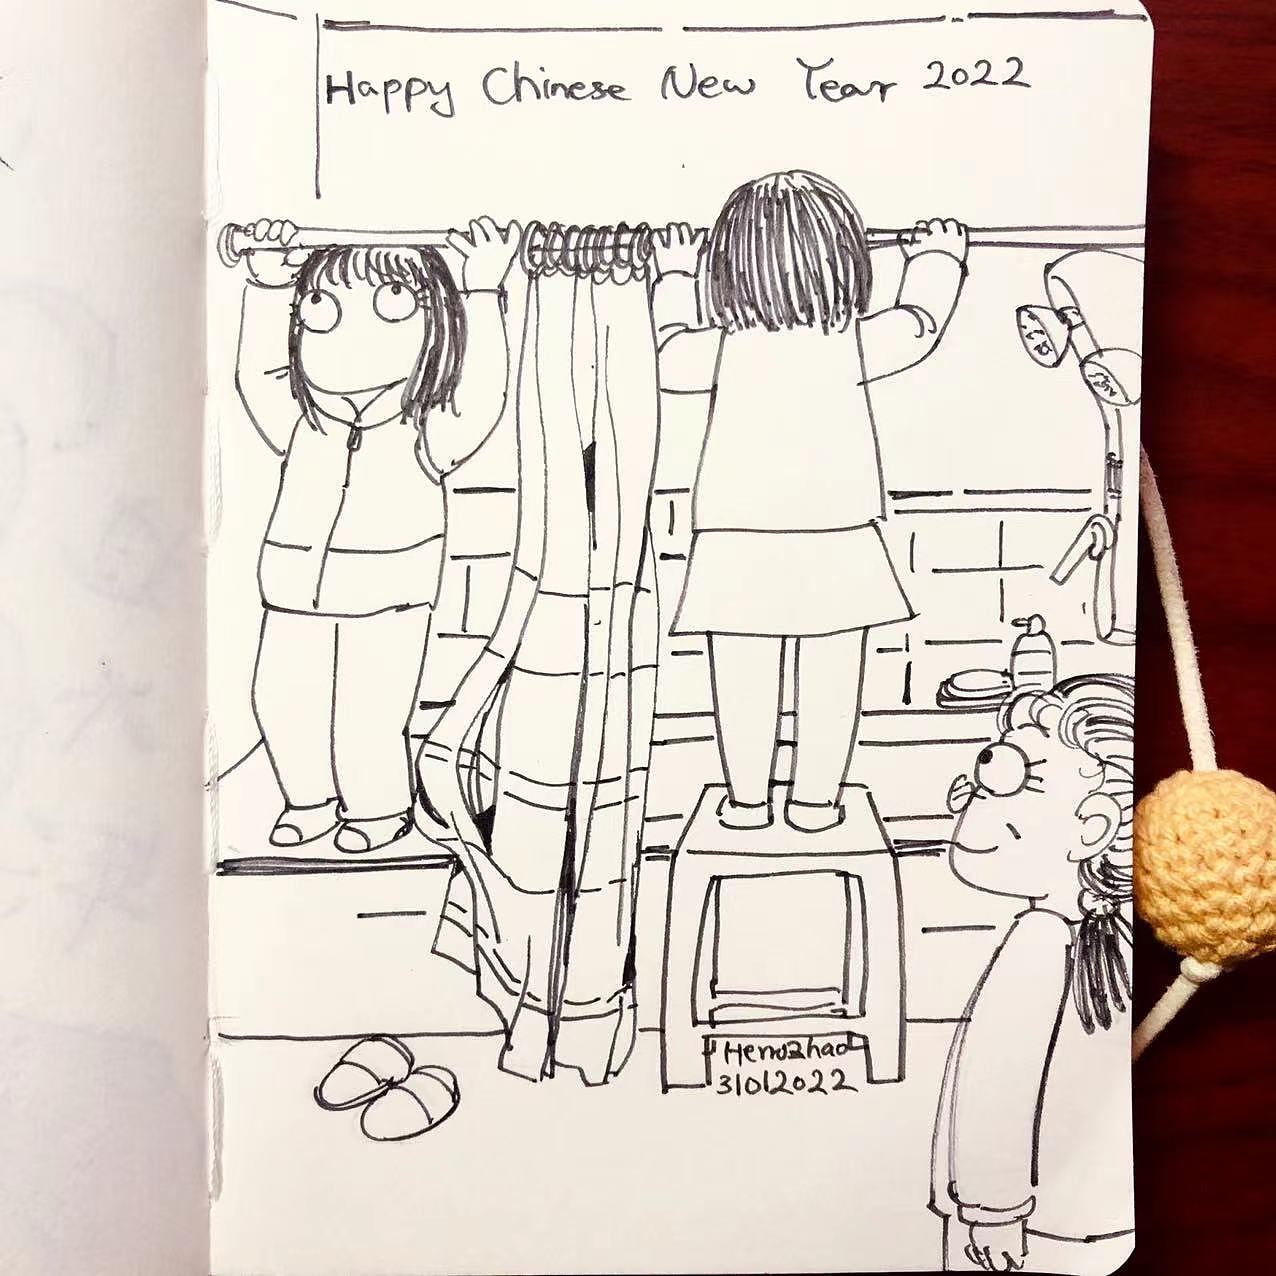 Happy Chinese New Year 2022
31012022